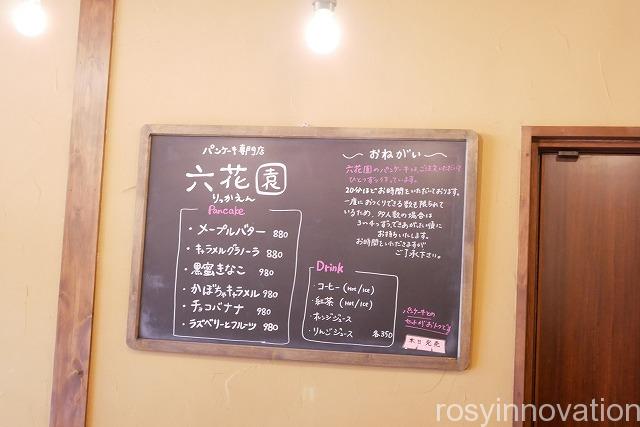 パンケーキ専門店
六花園
りっかえん
Pancake
・メープルバター 880
・キャラメルグラノーラ 880
・黒蜜きなこ 980
・かぼちゃキャラメル 980
・チョコバナナ 980
・ラズベリーとフルーツ 980
おねがい
六花園のパンケーキは、ご注文いただいて
ひとつずつつくっています。
20分ほどお時間をいただいております。
一度におつくりできる数も限られて
いるため、多人数の場合は
できあがった順に
お持ちいたします。
お時間をいただきますが
ご了承下さい。
Drink
・コーヒー (Hot/Ice)
・紅茶 (Hot/Ice)
・オレンジジュース
・りんごジュース 各350
パンケーキとの
セットがおトクです
本日完売
rosyinnovation